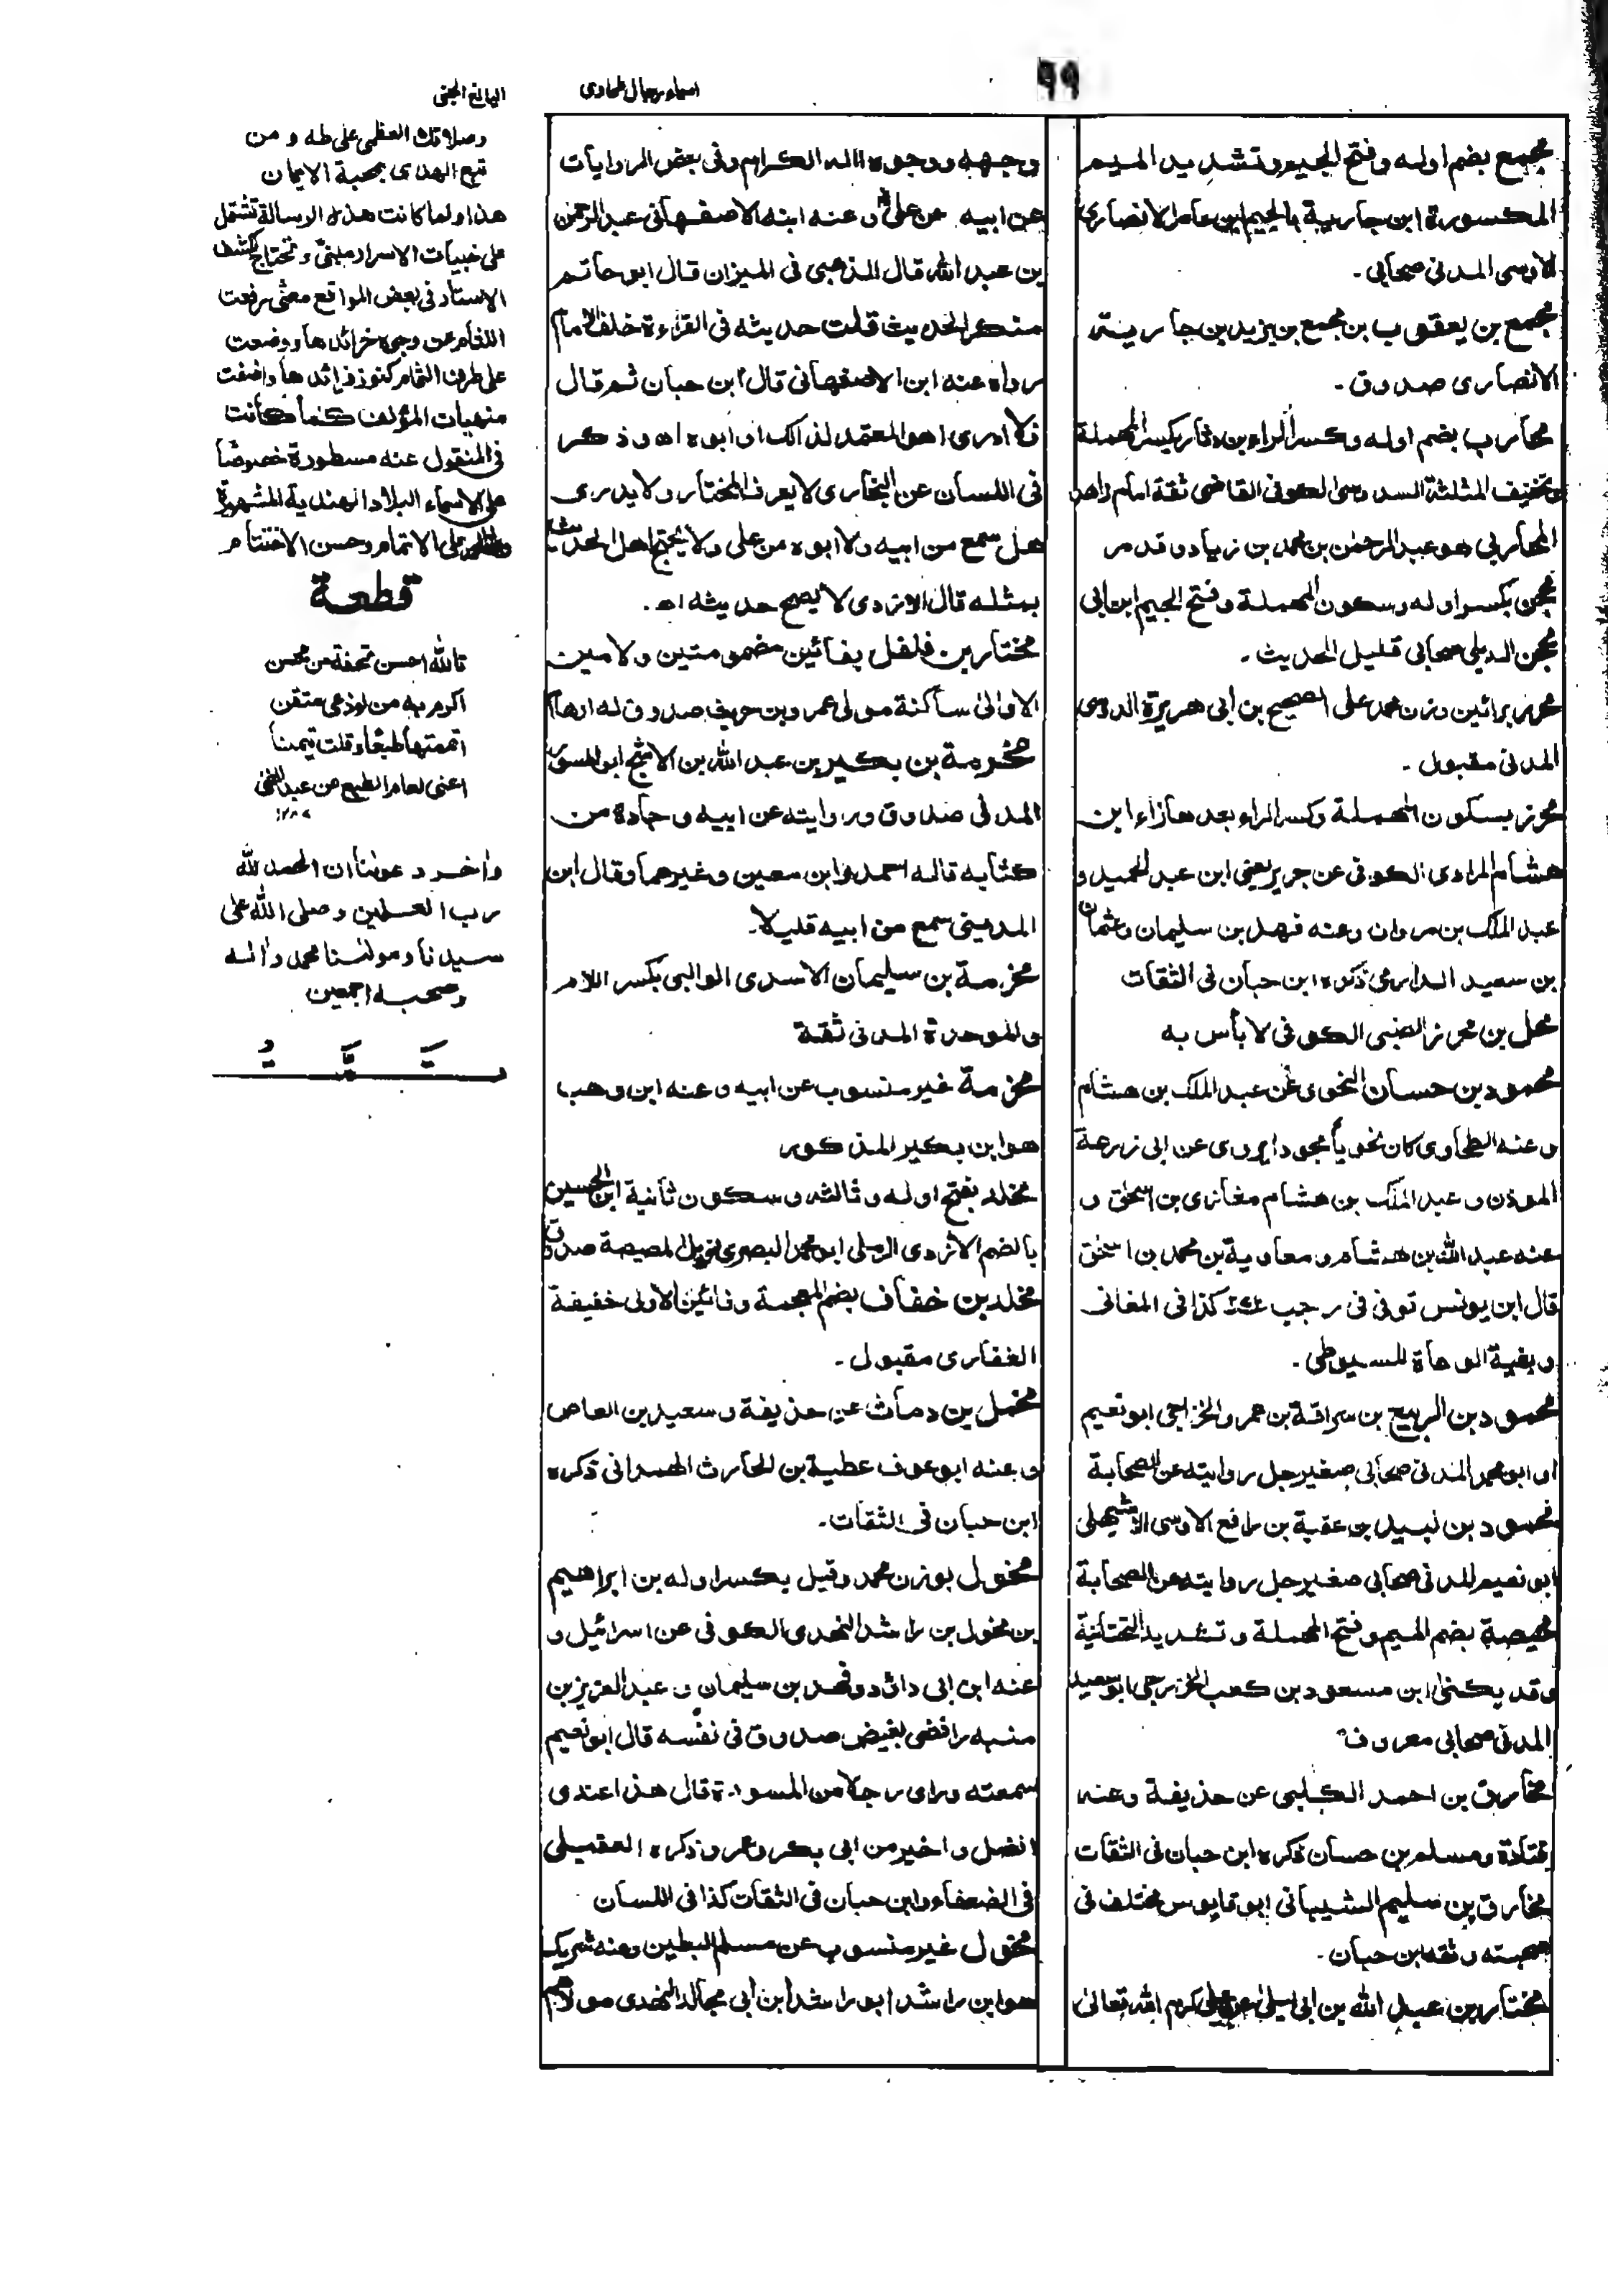 ٩٩
اسماء رجال طحاوى
اليانع الجنى
مجمع بضم اوله وفتح الجيم وتشديد الميم
المكسورة ابن جارية بالجيم ابن عامر الانصارى
الاوسى المدنى صحابى۔
مجمع بن يعقوب بن مجمع بن يزيد بن جارية
الانصارى صدوق۔
محارب بضم اوله وكسر الراء بن دثار بكسر المهملة
وتخفيف المثلثة السدوسى الكوفى القاضى ثقة امام زاهد
المحاربى هو عبد الرحمٰن بن محمد بن زياد وقد مر
محجن بكسر اوله وسكون المهملة وفتح الجيم ابن ابى
محجن الديلى صحابى قليل الحديث۔
محرر برائين وزن محمد على الصحيح بن ابى هريرة الدوسى
المدنى مقبول۔
محرز بسكون المهملة وكسر الراء بعدها زاء ابن
هشام المرادى الكوفى عن جرير يعنى ابن عبد الحميد و
عبد الملك بن مروان وعنه فهد بن سليمان وعثمان
بن سعيد الدارمى ذكره ابن حبان فى الثقات
محل بن محرز الضبى الكوفى لا بأس به
محمود بن حسان النحوى عن عبد الملك بن هشام
وعنه الطحاوى كان نحويا مجودا يروى عن ابى زرعة
الموذن وعبد الملك بن هشام مغازى بن اسحٰق و
عنه عبد الله بن هشام ومعاوية بن محمد بن اسحٰق
قال ابن يونس توفى فى رجب كذا فى المغانى
وبغية الوعاة للسيوطى۔
محمود بن الربيع بن سراقة بن عمرو الخزرجى ابو نعيم
او ابو محمد المدنى صحابى صغير جل روايته عن الصحابة
محمود بن لبيد بن عقبة بن رافع الاوسى الاشهلى
ابو نعيم المدنى صحابى صغير جل روايته عن الصحابة
محيصة بضم الميم وفتح المهملة وتشديد التحتانية
وقد يسكن ابن مسعود بن كعب الخزرجى ابو سعيد
المدنى صحابى معروف
مخارق بن احمد الكلبى عن حذيفة وعنه
قتادة ومسلم بن حسان ذكره ابن حبان فى الثقات
مخارق بن سليم الشيبانى ابو قابوس مختلف فى
صحبته وثقه ابن حبان۔
مختار بن عبد الله بن ابى ليلى عن على كرم الله تعالىٰ
وجهه ووجوه اٰله الكرام وفى بعض الروايات
عن ابيه عن على وعنه ابنه الاصفهانى عبد الرحمٰن
بن عبد الله قال الذهبى فى الميزان قال ابو حاتم
منكر الحديث قلت حديثه فى القراءة خلف الامام
رواه عنه ابن الاصفهانى قال ابن حبان ثم قال
فلا ادرى اهو المعتمد لذالك او ابوه اه وذكر
فى اللسان عن البخارى لا يعرف المختار ولا يدرى
هل سمع من ابيه ولا ابوه من على ولا يحتج اهل الحديث
بمثله قال الازدى لا يصح حديثه اه۔
مختار بن فلفل بفائين مضمومتين ولامين
الاولىٰ ساكنة مولى عمرو بن حريث صدوق له اوهام
مخرمة بن بكير بن عبد الله بن الاشج ابو المسور
المدنى صدوق وروايته عن ابيه وجادة من
كتابه قاله احمد وابن معين وغيرهما وقال ابن
المدينى سمع من ابيه قليلا۔
مخرمة بن سليمان الاسدى الوالبى بكسر اللام
والموحدة المدنى ثقة
مخرمة غير منسوب عن ابيه وعنه ابن وهب
هو ابن بكير المذكور
مخلد بفتح اوله وثالثه وسكون ثانية ابن الحسين
بالضم الازدى الرملى ابو محمد البصرى نزيل المصيصة صدوق
مخلد بن خفاف بضم المعجمة وفائين الاولى خفيفة
الغفارى مقبول۔
مخمل بن دماث عن حذيفة وسعيد بن العاص
وعنه ابو عوف عطية بن الحارث الهمدانى ذكره
ابن حبان فى الثقات۔
مخول بوزن محمد وقيل بكسر اوله بن ابراهيم
بن مخول بن راشد النهدى الكوفى عن اسرائيل و
عنه ابن ابى داؤد وفهد بن سليمان وعبد العزيز بن
منبه رافضى بغيض صدوق فى نفسه قال ابو نعيم
سمعته وراى رجلا من المسودة قال هذا عندى
افضل واخير من ابى بكر وعمر وذكره العقيلى
فى الضعفاء وابن حبان فى الثقات كذا فى اللسان
مخول غير منسوب عن مسلم البطين وعنه شريك
هو ابن راشد ابو راشد ابن ابى مجالد النهدى مولاهم
وصلاتك العظمى على طه ومن
تبع الهدى بمحبة الايمان
هذا ولما كانت هذه الرسالة تشتمل
على خبيات الاسرار مبنىً وتحتاج كشف
الاستار فى بعض المواقع معنًى رفعت
اللثام عن وجوه خرائدها ووضعت
على طرف الثمام كنوز فرائدها واضفت
منهيات المؤلف كما كانت
فى المنقول عنه مسطورة خصوصًا
على الاسماء البلاد الهندية المشهورة
على الاتمام وحسن الاختتام
قطعة
تالله احسن تحفة من محسن
اكرم به من لوذعى متقن
اتممتها طبعًا وقلت تيمنا
اعنى لعام الطبع من عبد الغنى
واٰخر دعوٰنا ان الحمد لله
رب العٰلمين وصلى الله على
سيدنا ومولٰنا محمد واٰله
وصحبه اجمعين